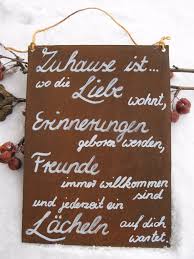 Zuhause ist...
wo die
Liebe
wohnt,
Erinnerungen
geboren werden,
Freunde
immer willkommen
sind
und jederzeit ein
Lächeln auf dich
wartet.